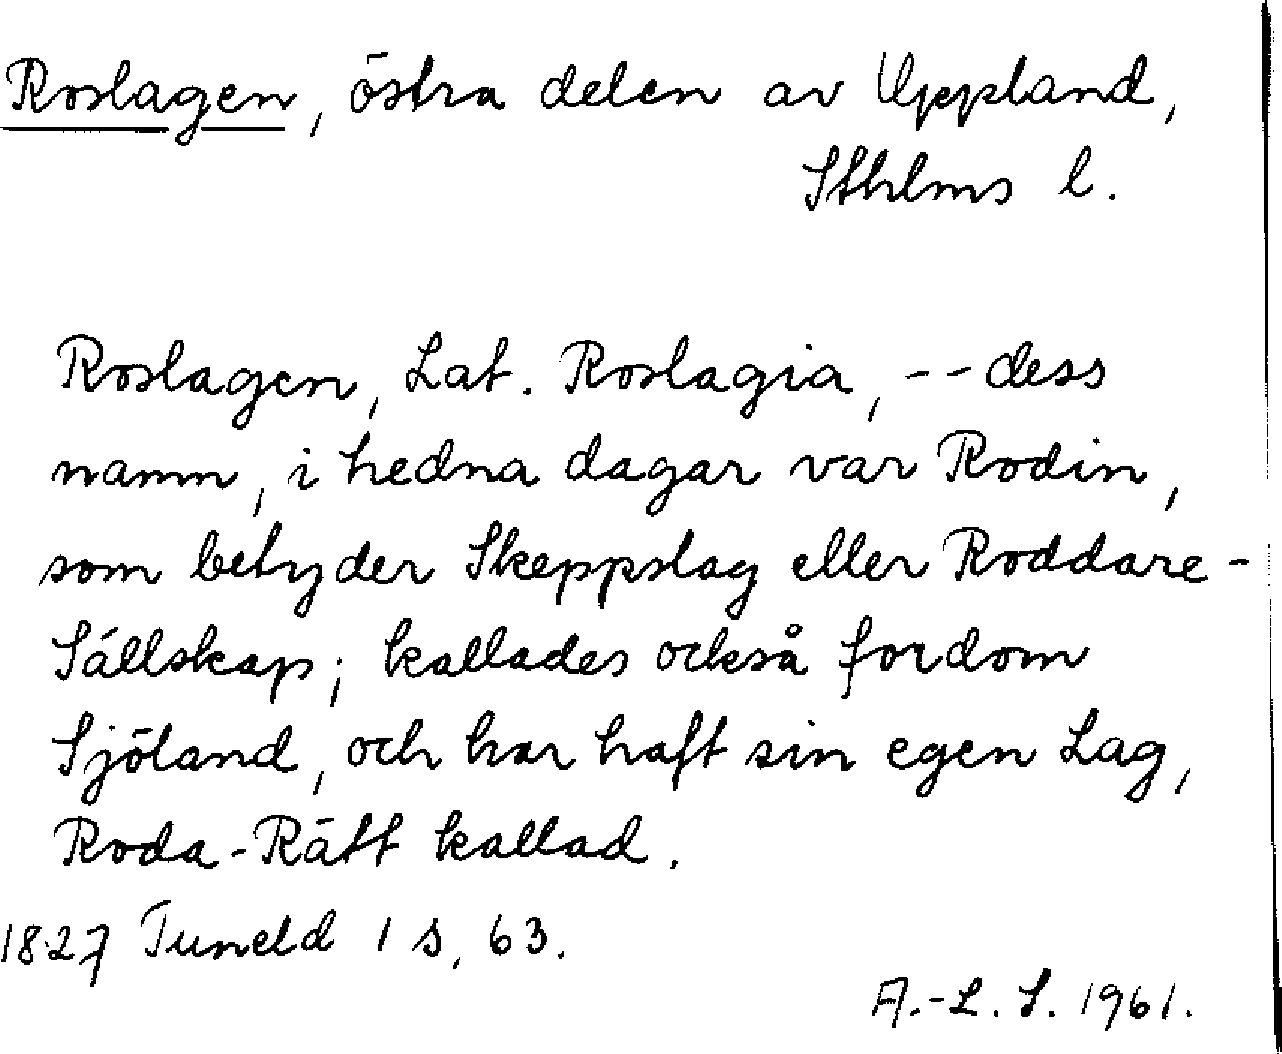 Roslagen, östra delen av Uppland,
Sthlms l.
Roslagen, Lat. Roslagia, -- dess
namn, i hedna dagar var Rodin,
som betyder Skeppslag eller Roddare-
Sällskap; kallades också fordom
Sjöland, och har haft sin egen Lag,
Roda-Rätt kallad.
1827 Tuneld 1 s. 63.
A.-L. S. 1961.